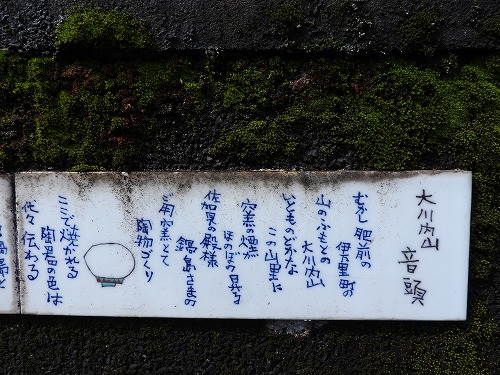 大川内山
音頭
むかし肥前の
伊万里町の
山のふもとの
大川内山
いとものどかな
この山里に
窯の煙
ほのぼの昇る
佐賀の殿様
鍋島さまの
ご用窯とて
陶物づくり
ここで焼かれる
陶器の色は
代々伝わる